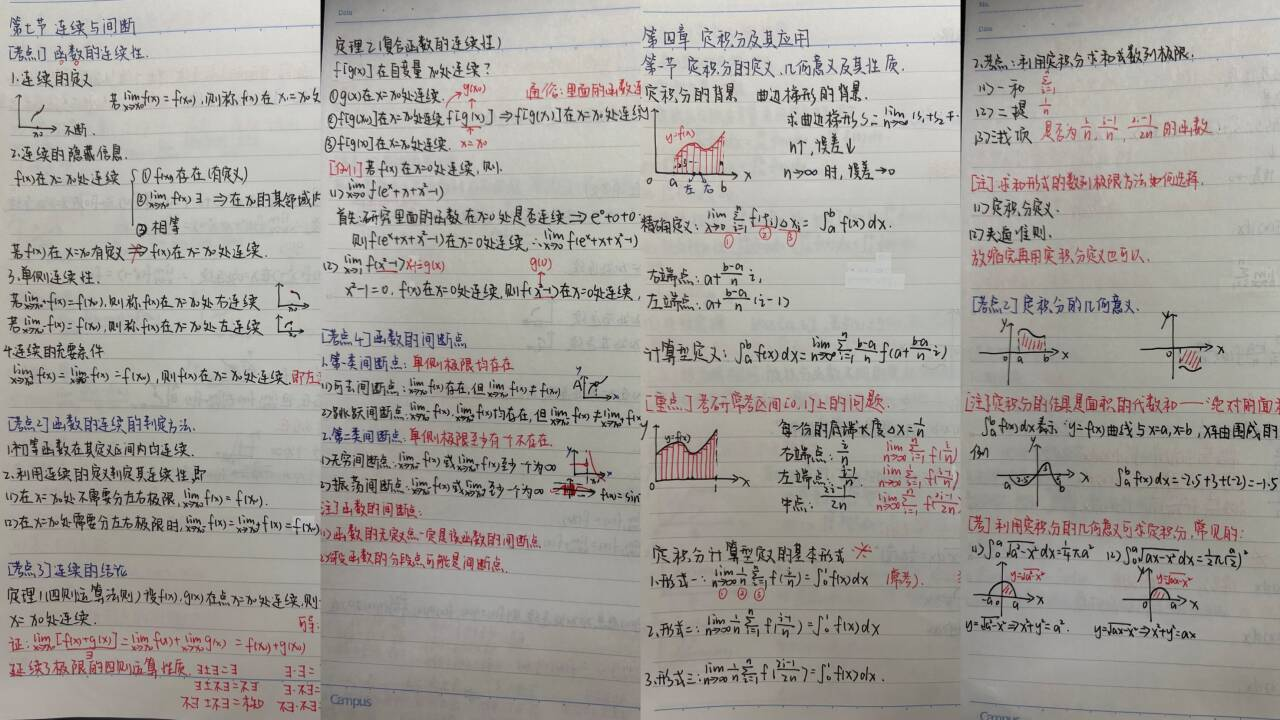 第七节 连续与间断
[考点1] 函数的连续性.
1.连续的定义
若lim x→x₀ f(x)=f(x₀),则称f(x)在x=x₀处
不断.
2.连续的隐藏信息.
f(x)在x=x₀处连续
① f(x₀)存在(有定义)
② lim x→x₀ f(x)∃ ⇒在x₀的某邻域内
③ 相等
若f(x)在x=x₀有定义⇏f(x)在x=x₀处连续.
3.单侧连续性.
若lim f(x)=f(x₀),则称f(x)在x=x₀处右连续
若lim f(x)=f(x₀),则称f(x)在x=x₀处左连续
4.连续的充要条件
lim f(x)=lim f(x)=f(x₀),则f(x)在x=x₀处连续.即左
[考点2]函数的连续的判定方法.
1.初等函数在其定义区间内均连续.
2.利用连续的定义判定其连续性,即
(1)在x=x₀处不需要分左右极限,lim x→x₀ f(x)=f(x₀).
(2)在x=x₀处需要分左右极限时,lim f(x)=lim f(x)=f(x₀)
[考点3]连续的结论
定理1(四则运算法则)设f(x).g(x)在点x=x₀处连续,则
x=x₀处连续.
证:lim x→x₀ [f(x)+g(x)]=lim x→x₀ f(x)+lim x→x₀ g(x)=f(x₀)+g(x₀)
∃
延续了极限的四则运算性质. ∃±∃=∃ ∃·∃=
∃±不∃=不∃ ∃·不∃=
不∃±不∃=未知 不∃·不∃=
Date
定理2(复合函数的连续性)
f[g(x)]在自变量x₀处连续?
①g(x)在x=x₀处连续. g(x₀) 通俗:里面的函数连
②f[g(x)]在x=x₀处连续 f[g(x)] ⇒f[g(x)]在x=x₀处连续
③f[g(x)]在x=x₀处连续. x=x₀
[例1]若f(x)在x=0处连续,则.
(1)lim x→0 f(eˣ+x+x²-1)
首先:研究里面的函数在x=0处是否连续⇒e⁰+0+0
则f(eˣ+x+x²-1)在x=0处连续,∴lim x→0 f(eˣ+x+x²-1)
(2) lim x→1 f(x²-1) x=1=g(x) g(0)
x²-1=0. f(x)在x=0处连续,则f(x²-1)在x=0处连续,
[考点4]函数的间断点
1.第一类间断点:单侧极限均存在
(1)可去间断点:lim x→x₀ f(x)存在,但lim x→x₀ f(x)≠f(x₀)
(2)跳跃间断点.lim f(x).lim f(x)均存在,但lim f(x)≠lim f(x)
2.第二类间断点.单侧极限至少有一个不存在.
(1)无穷间断点:lim f(x)或lim f(x)至少一个为∞
(2)振荡间断点:lim f(x)或lim至少一个为∞ f(x)=sin
[注]函数的间断点:
(1)函数的无定义点一定是该函数的间断点
(2)分段函数的分段点可能是间断点.
Campus
第四章 定积分及其应用
第一节 定积分的定义、几何意义及其性质.
定积分的背景 曲边梯形的背景.
求曲边梯形S=lim n→∞ (S₁+S₂+
y=f(x)
n↑,误差↓
n→∞时,误差→0
0 a 左 右 b x
精确定义: lim λ→0 Σ i=1 n f(ξᵢ)Δxᵢ=∫ₐᵇ f(x)dx.
① ② ③
右端点:a+(b-a)/n i,
左端点:a+(b-a)/n (i-1)
计算型定义:∫ₐᵇ f(x)dx=lim n→∞ Σ i=1 n (b-a)/n f(a+(b-a)/n i)
[重点]考研常考区间[0,1]上的问题.
y y=f(x) 0 1 x
每一份的底端长度Δx=1/n
右端点:i/n lim n→∞ 1/n Σ i=1 n f(i/n)
左端点:(i-1)/n lim n→∞ 1/n Σ i=1 n f((i-1)/n)
中点:(2i-1)/2n lim n→∞ 1/n Σ i=1 n f((2i-1)/2n)
定积分计算型定义的基本形式
1.形式一:lim n→∞ 1/n Σ i=1 n f(i/n)=∫₀¹ f(x)dx (常考).
① ② ③
2.形式二:lim n→∞ 1/n Σ i=1 n f((i-1)/n)=∫₀¹ f(x)dx
3.形式三:lim n→∞ 1/n Σ i=1 n f((2i-1)/2n)=∫₀¹ f(x)dx.
No.
Date
2.考点:利用定积分求和式数列极限:
(1)一和 Σ i=1 n
(2)二提 1/n
(3)三找项 是否为i/n,(i-1)/n,(2i-1)/2n的函数.
[注]求和形式的数列极限方法如何选择.
(1)定积分定义.
(2)夹逼准则.
放缩完再用定积分定义也可以.
[考点2]定积分的几何意义.
y 0 a b x
y x
[注]定积分的结果是面积的代数和——绝对的面
∫ₐᵇ f(x)dx表示y=f(x)曲线与x=a,x=b,x轴由围成的
例
a 2.5 b x ∫ₐᵇ f(x)dx=-2.5+3+(-2)=-1.5
[考]利用定积分的几何意义可求定积分,常见的:
(1)∫₀ᵃ √(a²-x²)dx=1/4πa² (2)∫₀ᵃ √(ax-x²)dx=1/2π(a/2)²
y=√(a²-x²) y=√(ax-x²)
-a 0 a x
y=√(a²-x²)⇒x²+y²=a². y=√(ax-x²)⇒x²+y²=ax